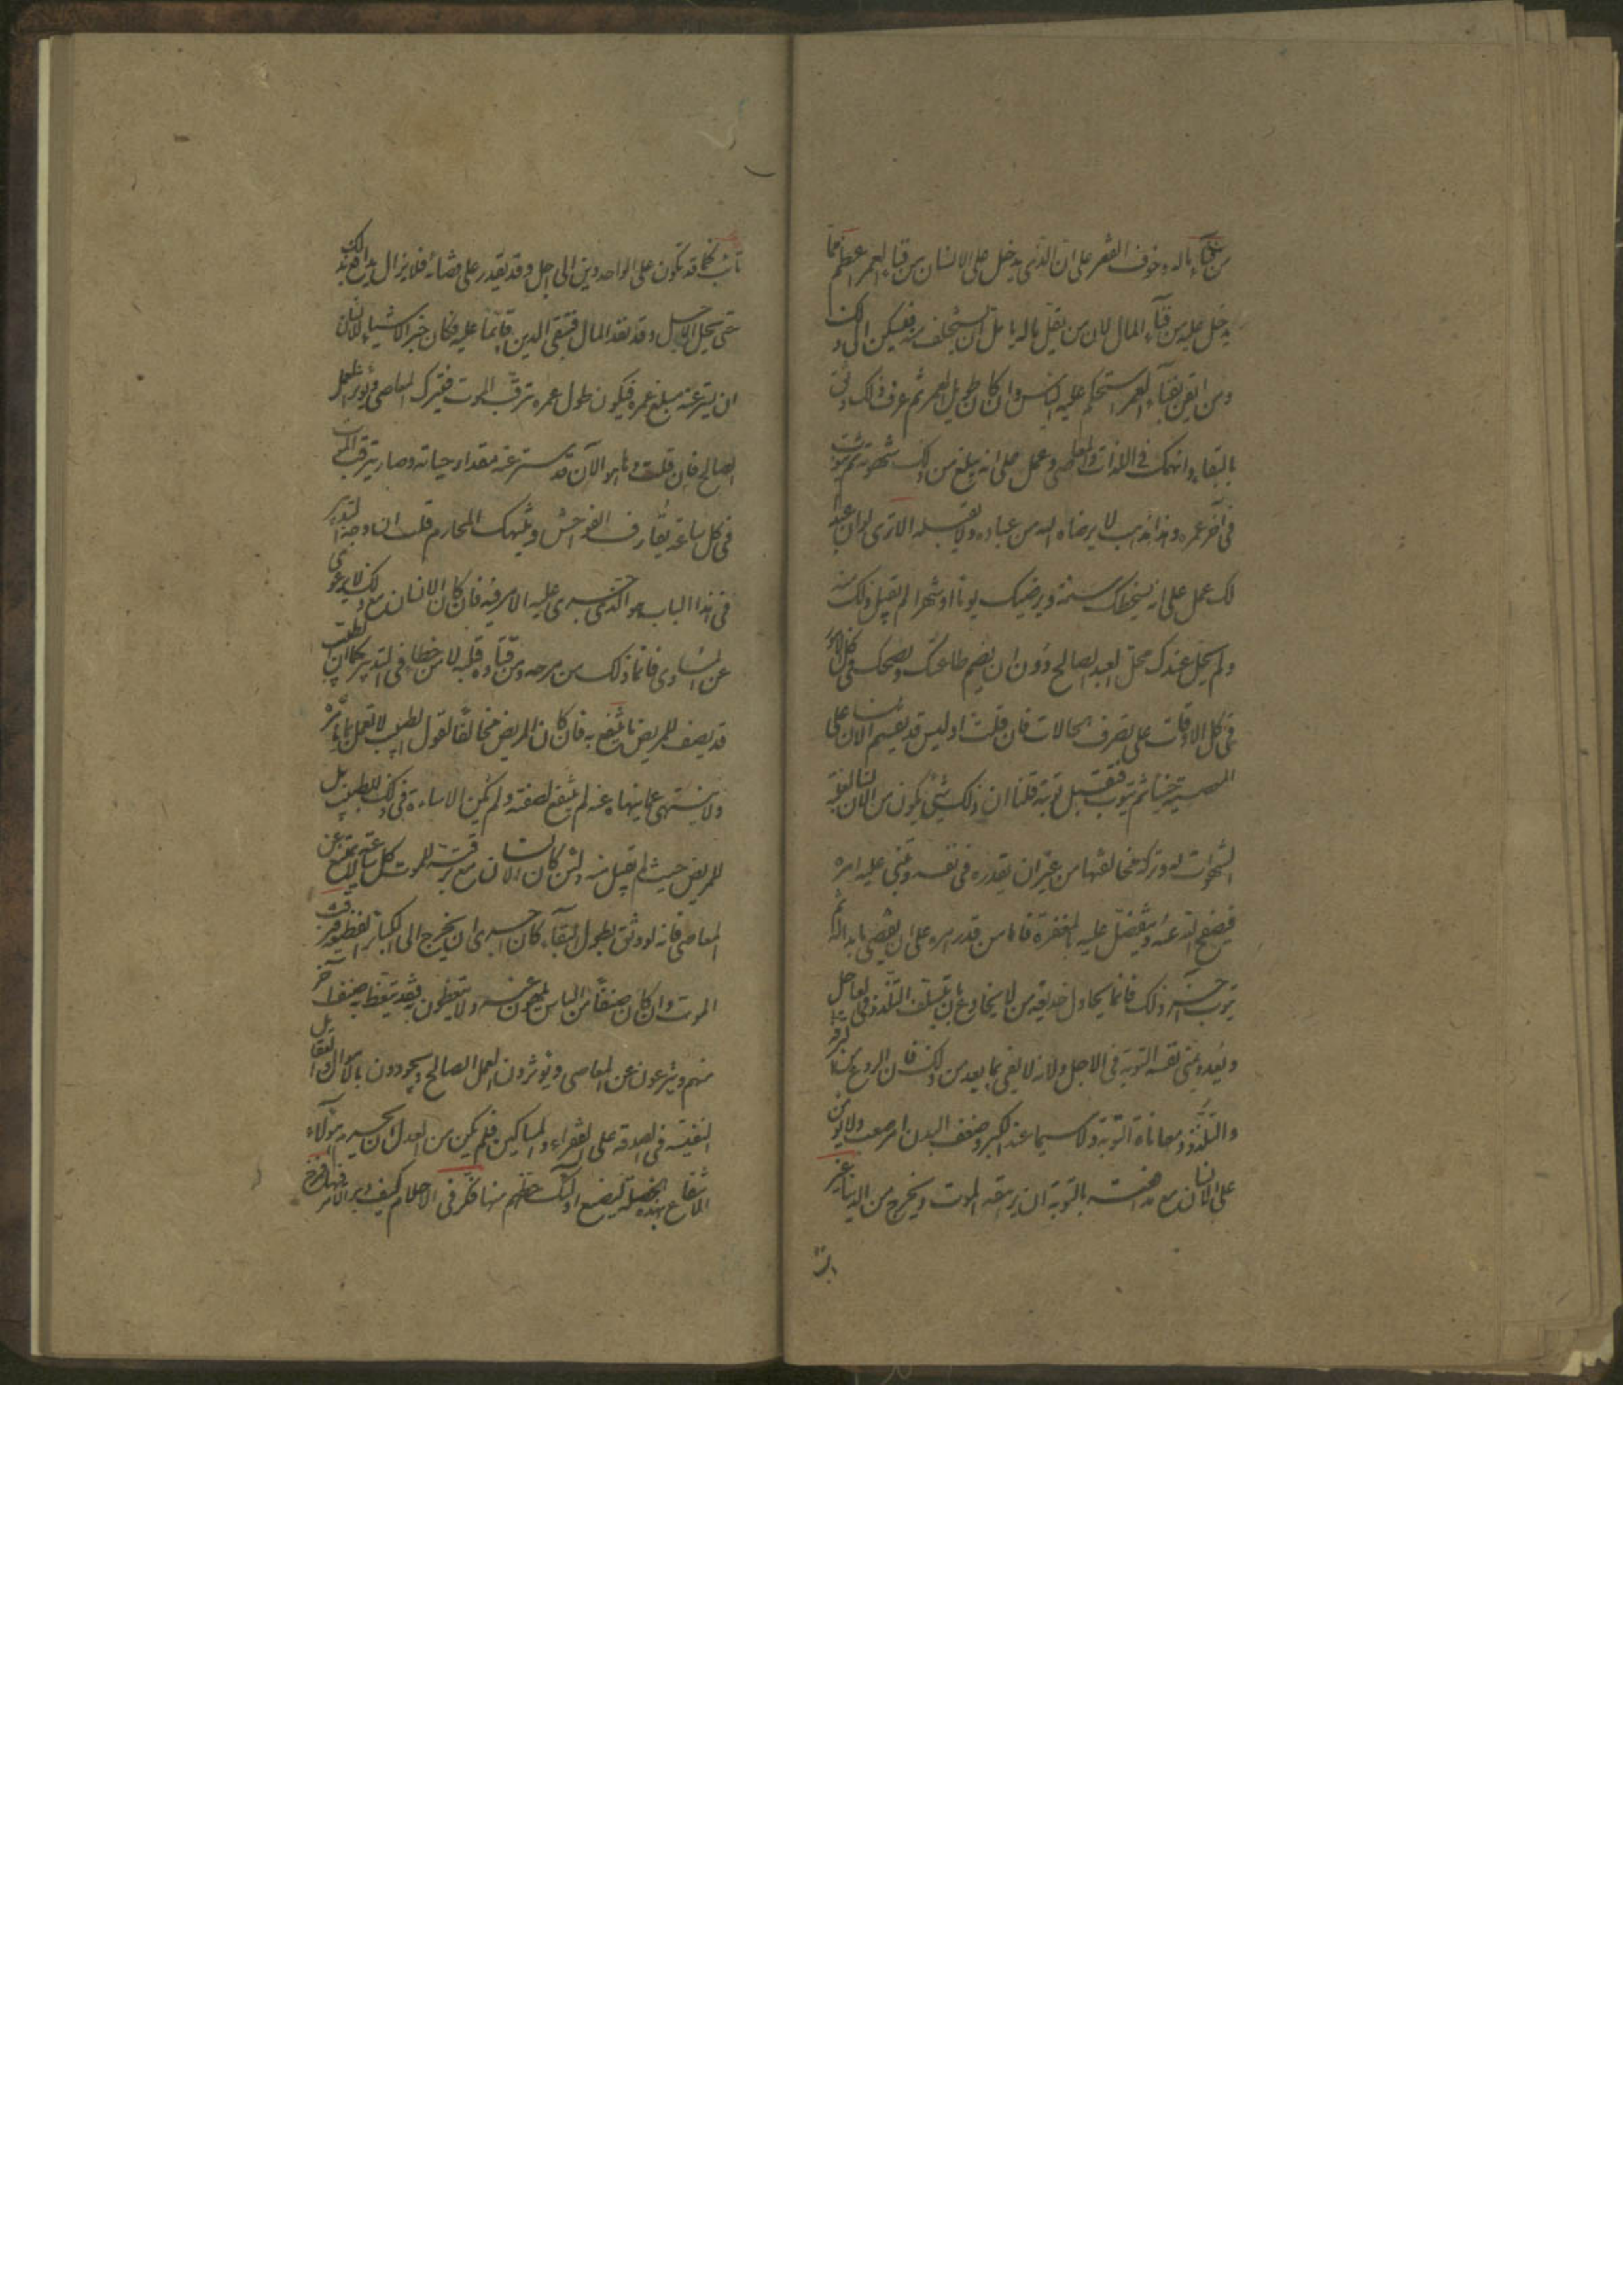 من فناء ماله وخوف الفقر على ان الذى يدخل على الانسان من فناء العمر اعظم مما
يدخل عليه من فناء المال لان من يقل ماله يامل ان يستخلف منه فيسكن الى ذلك
ومن ايقن بفناء العمر استحكم عليه الياس وان كان طويل العمر ثم عرف ذلك وثق
بالبقاء وانهمك فى اللذات والمعاصى وعمل على انه يبلغ من ذلك شهوته ثم يتوب
فى آخر عمره وهذا مذهب لا يرضاه الله من عباده ولا يقبله الا ترى لو ان عبدا
لك عمل على انه يسخطك سنة ويرضيك يوما او شهرا لم تقبل ذلك منه
ولم يحل عندك محل العبد الصالح دون ان يضمر طاعتك ونصحك فى كل الامور
فى كل الاوقات على تصرف الحالات فان قلت اوليس قد يقيم الانسان على
المعصية حينا ثم يتوب فتقبل توبته قلنا ان ذلك شئ يكون من الانسان لغلبة
الشهوات له وتركه مخالفتها من غير ان يقدره فى نفسه ويبنى عليه امره
فيصفح الله عنه ويتفضل عليه بالمغفرة فاما من قدر امره على ان يعصى ما بدا له ثم
يتوب آخر ذلك فانما يحاول خديعة من لا يخادع بان يتسلف التلذذ فى العاجل
ويعد ويمنى نفسه التوبة فى الاجل ولانه لا يفى بما يعد من ذلك فان النزوع من الترفه
والتلذذ ومعاناة التوبة ولا سيما عند الكبر وضعف البدن امر صعب ولا يؤمن
على الانسان مع مدافعته بالتوبة ان يرهقه الموت ويخرج من الدنيا غير
تائب كما قد تكون على الواحد دين الى اجل وقد يقدر على قضائه فلا يزال يدافع بذلك
حتى يحل الاجل وقد نفد المال فيبقى الدين قائما عليه فكان خير الاشياء للانسان
ان يستر عنه مبلغ عمره فيكون طول عمره يترقب الموت فيترك المعاصى ويؤثر العمل
الصالح فان قلت وها هو الآن قد ستر عنه مقدار حياته وصار يترقب الموت
فى كل ساعة يقارف الفواحش وينتهك المحارم قلنا ان وجه التدبير
فى هذا الباب هو الذى جرى عليه الامر فيه فان كان الانسان مع ذلك لا يرعوى
عن المساوى فانما ذلك من مرحه ومن قساوة قلبه لا من خطاء فى التدبير كما ان الطبيب
قد يصف للمريض ما ينتفع به فان كان المريض مخالفا لقول الطبيب لا يعمل بما يامره
ولا ينتهى عما ينهاه عنه لم ينتفع بصفته ولم تكن الاساءة فى ذلك للطبيب بل
للمريض حيث لم يقبل منه ولئن كان الانسان مع ترقبه للموت كل ساعة لا يمتنع عن
المعاصى فانه لو وثق بطول البقاء كان احرى ان يخرج الى الكبائر الفظيعة فترقب
الموت وان كان صنفا من الناس يلهون عنه ولا يتعظون به فقد يتعظ به صنف آخر
منهم وينزعون عن المعاصى ويؤثرون العمل الصالح ويجودون بالاموال والعقايل
النفيسة فى الصدقة على الفقراء والمساكين فلم يكن من العدل ان يحرم هؤلاء
الانتفاع بهذه الخصلة لتضييع اولئك حظهم منها فكر فى الاحلام كيف دبر الامر فيها فمزج